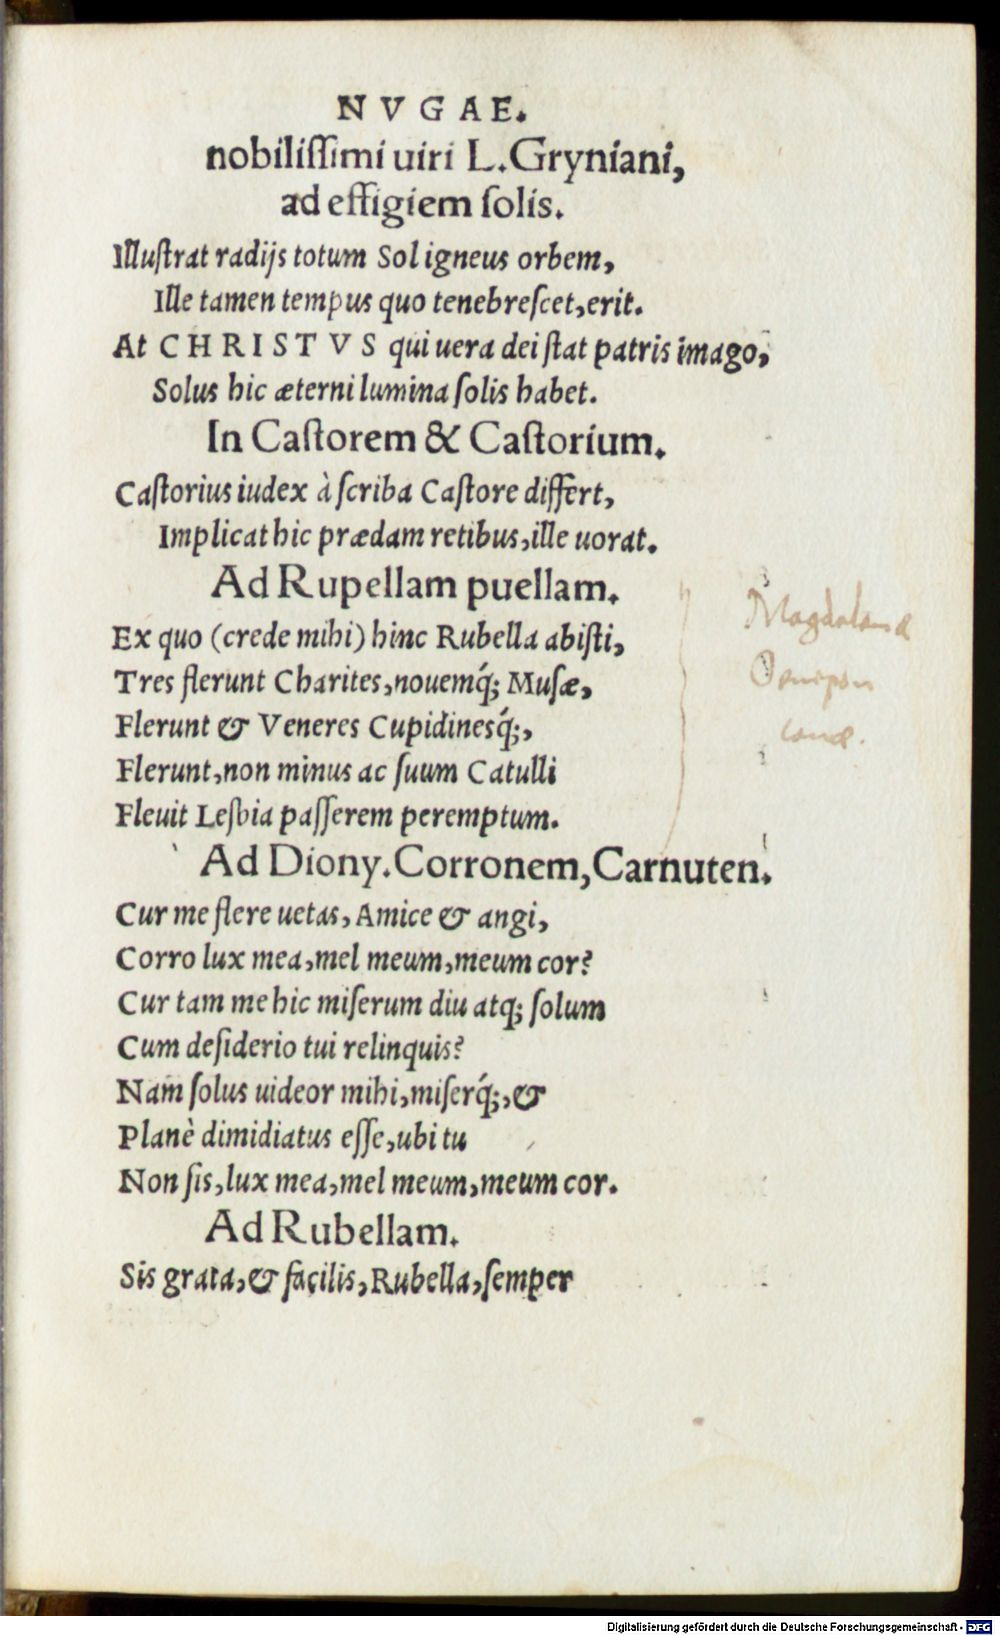 NVGAE.
nobilissimi uiri L. Gryniani,
ad effigiem solis.
Illustrat radijs totum Sol igneus orbem,
Ille tamen tempus quo tenebrescet, erit.
At CHRISTVS qui uera dei stat patris imago,
Solus hic æterni lumina solis habet.
In Castorem & Castorium.
Castorius iudex à scriba Castore differt,
Implicat hic prædam retibus, ille uorat.
Ad Rupellam puellam.
Ex quo (crede mihi) hinc Rubella abisti,
Tres flerunt Charites, nouemq́; Musæ,
Flerunt & Veneres Cupidinesq́;,
Flerunt, non minus ac suum Catulli
Fleuit Lesbia passerem peremptum.
Magdalanæ
Ad Diony. Corronem, Carnuten.
Cur me flere uetas, Amice & angi,
Corro lux mea, mel meum, meum cor?
Cur tam me hic miserum diu atq; solum
Cum desiderio tui relinquis?
Nam solus uideor mihi, miserq́;, &
Planè dimidiatus esse, ubi tu
Non sis, lux mea, mel meum, meum cor.
Ad Rubellam.
Sis grata, & facilis, Rubella, semper
Digitalisierung gefördert durch die Deutsche Forschungsgemeinschaft - DFG